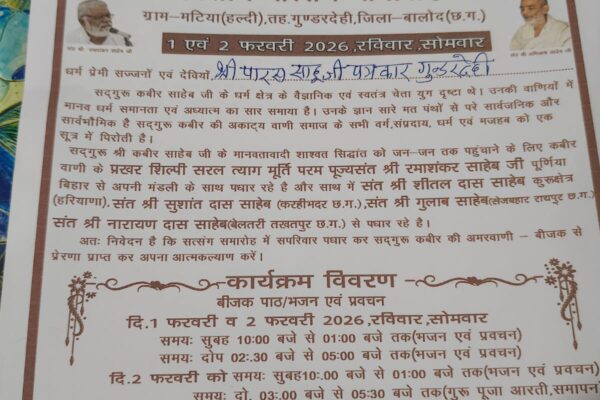 ग्राम-मटिया(हल्दी),तह.गुण्डरदेही,जिला-बालोद(छ.ग.)
1 एवं 2 फरवरी 2026,रविवार,सोमवार
धर्म प्रेमी सज्जनों एवं देवियों, श्री पारस साहू जी पत्रकार गुण्डरदेही
सद्गुरू कबीर साहेब जी के धर्म क्षेत्र के वैज्ञानिक एवं स्वतंत्र चेता युग दृष्टा थे। उनकी वाणियों में
मानव धर्म समानता एवं अध्यात्म का सार समाया है। उनके ज्ञान सारे मत पंथों से परे सार्वजनिक और
सार्वभौमिक है सद्गुरू कबीर की अकाट्य वाणी समाज के सभी वर्ग,संप्रदाय, धर्म एवं मजहब को एक
सूत्र में पिरोती है।
सद्गुरू श्री कबीर साहेब के मानवतावादी शाश्वत सिद्धांत को जन-जन तक पहुंचाने के लिए कबीर
वाणी के प्रखर शिल्पी सरल त्याग मूर्ति परम पूज्यसंत श्री रमाशंकर साहेब जी पूर्णिया
बिहार से अपनी मंडली के साथ पधार रहे है और साथ में संत श्री शीतल दास साहेब कुरूक्षेत्र
(हरियाणा), संत श्री सुशांत दास साहेब (करहीभदर छ.ग.),संत श्री गुलाब साहेब(सेजबहार रायपुर छ.ग.)
संत श्री नारायण दास साहेब(बेलतरी तखतपुर छ.ग.) से पधार रहे है।
अतः निवेदन है कि सत्संग समारोह में सपरिवार पधार कर सद्गुरू कबीर की अमरवाणी - बीजक से
प्रेरणा प्राप्त कर अपना आत्मकल्याण करें।
कार्यक्रम विवरण
बीजक पाठ/भजन एवं प्रवचन
दि.1 फरवरी व 2 फरवरी 2026,रविवार,सोमवार
समयः सुबह 10:00 बजे से 01:00 बजे तक(भजन एवं प्रवचन)
समयः दोप 02:.30 बजे से 05:00 बजे तक(भजन एवं प्रवचन)
दि.2 फरवरी को समयः सुबह10:.00 बजे से 01:00 बजे तक(भजन एवं प्रवचन)
समयः दो. 03:.00 बजे से 05:30 बजे तक(गुरू पूजा आरती,समापन)